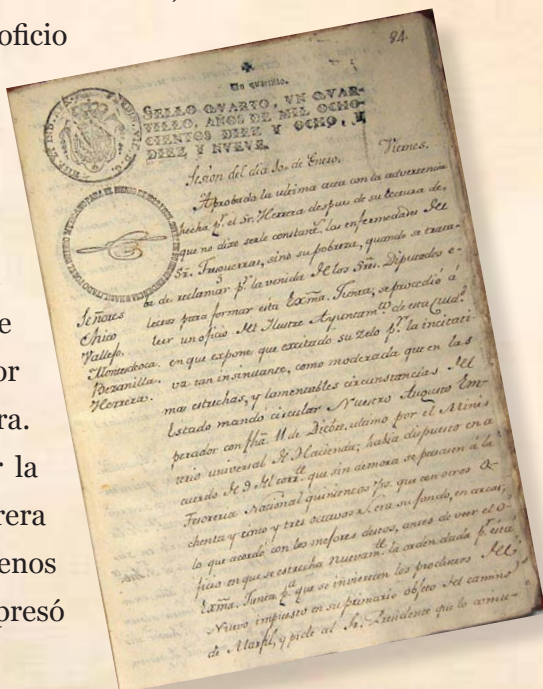 oficio
e
or
ra.
r la
rera
enos
presó
84.
Un quartillo.
SELLO QVARTO, VN QVAR-
TILLO, AÑOS DE MIL OCHO-
CIENTOS DIEZ Y OCHO, Y
DIEZ Y NVEVE.
Sesion del dia 10. de Enero. Viernes.
Aprobada la ultima acta con la advertencia
hecha p.r el Sr. Herrera despues de su lectura de,
que no dixo serle constant.s las enfermedades del
Sr. Tresguerras, sino su pobreza, quando se trata-
ba de reclamar p.r la venida de los Sres. Diputados e-
lectos para formar esta Exma. Junta; se procedió á
leer un oficio del Ilustre Ayuntam.to de esta Ciud.d
en que expone que excitado su zelo p.r la incitati-
va tan insinuante, como moderada que en las
mas estrechas, y lamentables circunstancias del
Estado mandó circular Nuestro Augusto Em-
perador con fha. 11 de Dicbre. ultimo por el Minis-
terio universal de Hacienda; habia dispuesto en a-
cuerdo de 9 del corr.te que sin demora se pasasen á la
Tesoreria Nacional quinientos p.s que con otros
chenta y cinco y tres octavos r.s era su fondo, en arcas;
lo que acordó con los mejores deseos, antes de ver el o-
ficio en que se estrecha nuevam.te la orden dada p.r esta
Exma. Junta p.a que se inviertan los productos del
Nuevo impuesto en su primario objeto del camino
de Marfil, y pide al Sr. Presidente que lo comu-
Señores
Chico
Vallejo.
Montesdeoca.
Bezanilla.
Herrera.